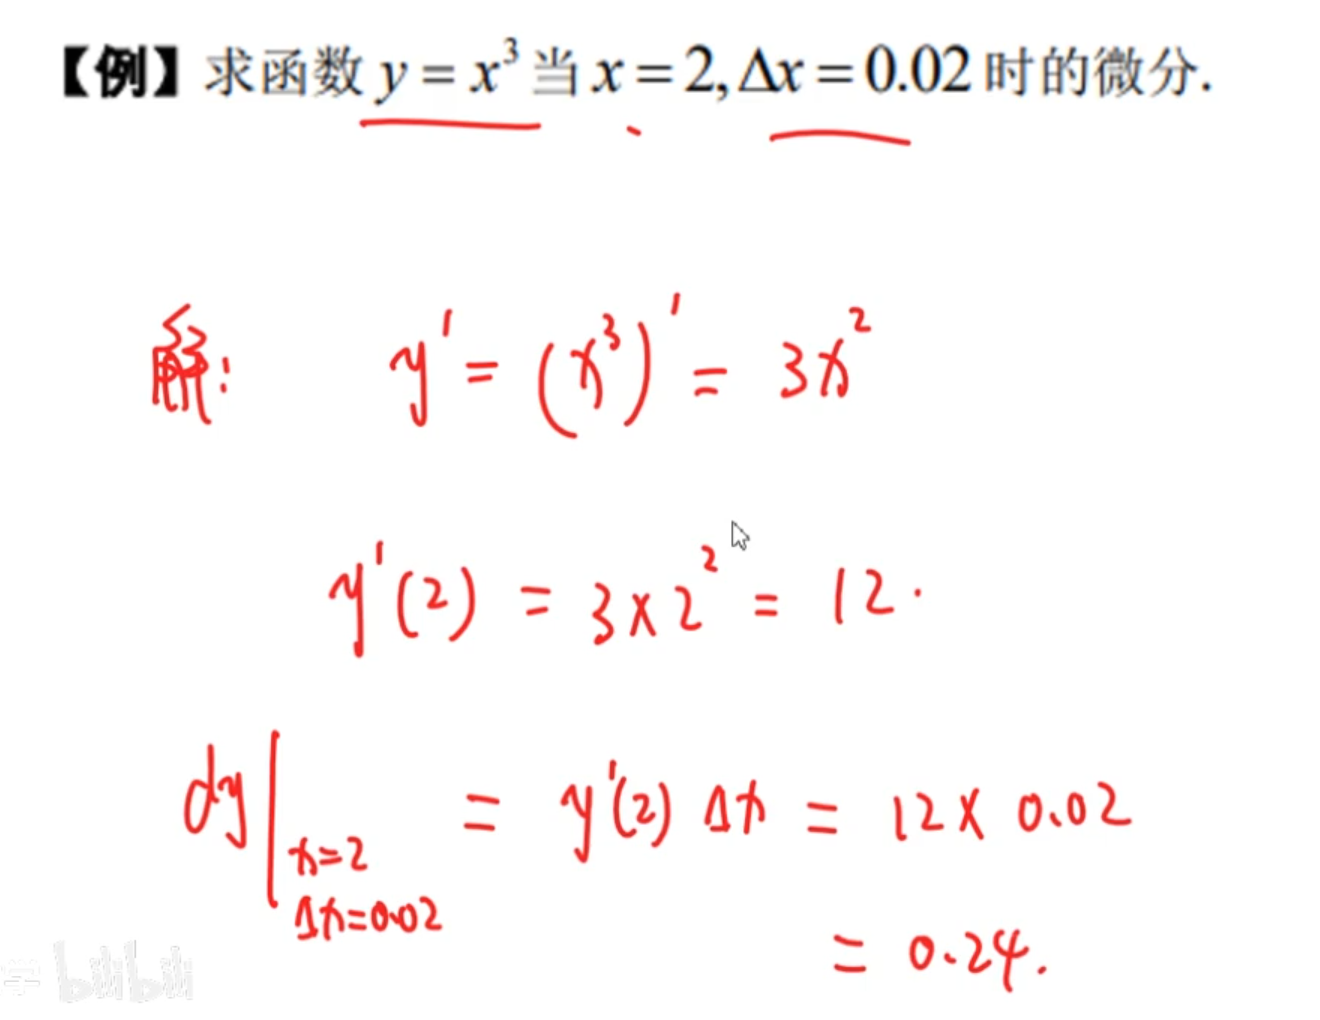 【例】求函数 y = x³ 当 x = 2, Δx = 0.02 时的微分.
解: y' = (x³)' = 3x²
y'(2) = 3×2² = 12.
dy|x=2 Δx=0.02 = y'(2) Δx = 12 × 0.02
= 0.24.
学 bilibili